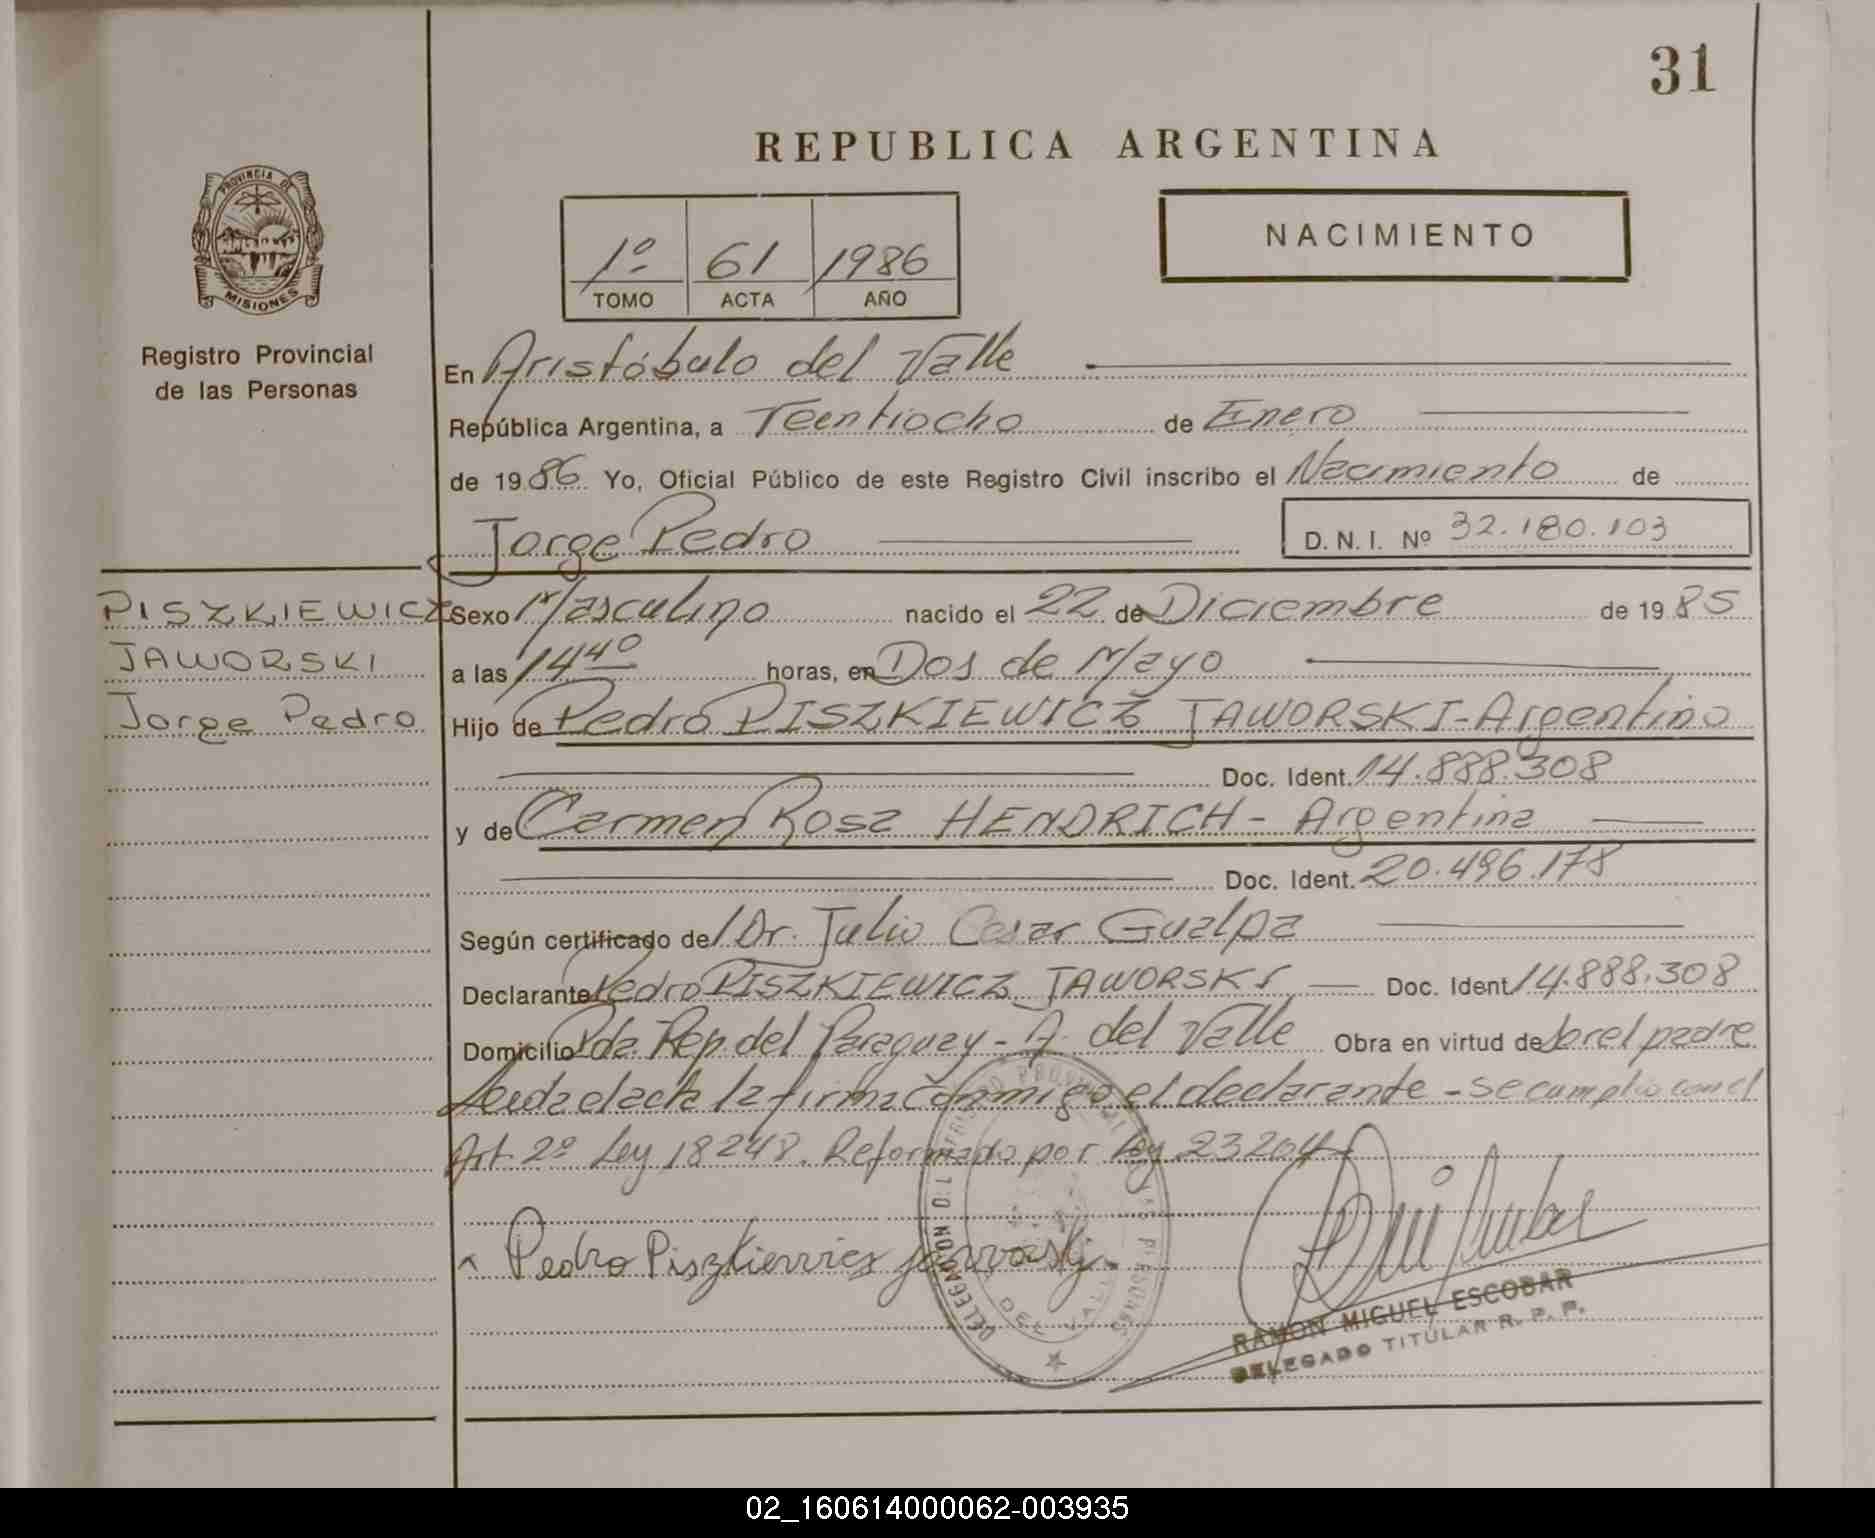 31
REPUBLICA ARGENTINA
PROVINCIA DE
MISIONES
Registro Provincial
de las Personas
1º 61 1986
TOMO ACTA AÑO
NACIMIENTO
En Aristóbulo del Valle
República Argentina, a Teentiocho de Enero
de 1986 Yo, Oficial Público de este Registro Civil inscribo el Nacimiento de
Jorge Pedro D. N. I. Nº 32.180.103
PISZKIEWICZ
JAWORSKI
Jorge Pedro
Sexo Masculino nacido el 22 de Diciembre de 1985
a las 14 40 horas, en Dos de Mayo
Hijo de Pedro PISZKIEWICZ JAWORSKI - Argentino
Doc. Ident. 14.888.308
y de Carmen Rosa HENDRICH - Argentina
Doc. Ident. 20.496.178
Según certificado de Dr. Julio Cesar Gualpa
Declarante Pedro PISZKIEWICZ JAWORSKI Doc. Ident. 14.888.308
Domicilio Pda. Rep. del Paraguay - A. del Valle Obra en virtud de ser el padre
Leida el acta la firma conmigo el declarante - se cumplio con el
Art. 2º Ley 18248. Reformado por Ley 23264
Pedro Piszkiewicz Jaworski
DELEGACION DEL REGISTRO PROVINCIAL DE LAS PERSONAS
DEL VALLE
RAMON MIGUEL ESCOBAR
DELEGADO TITULAR R. P. P.
02_160614000062-003935